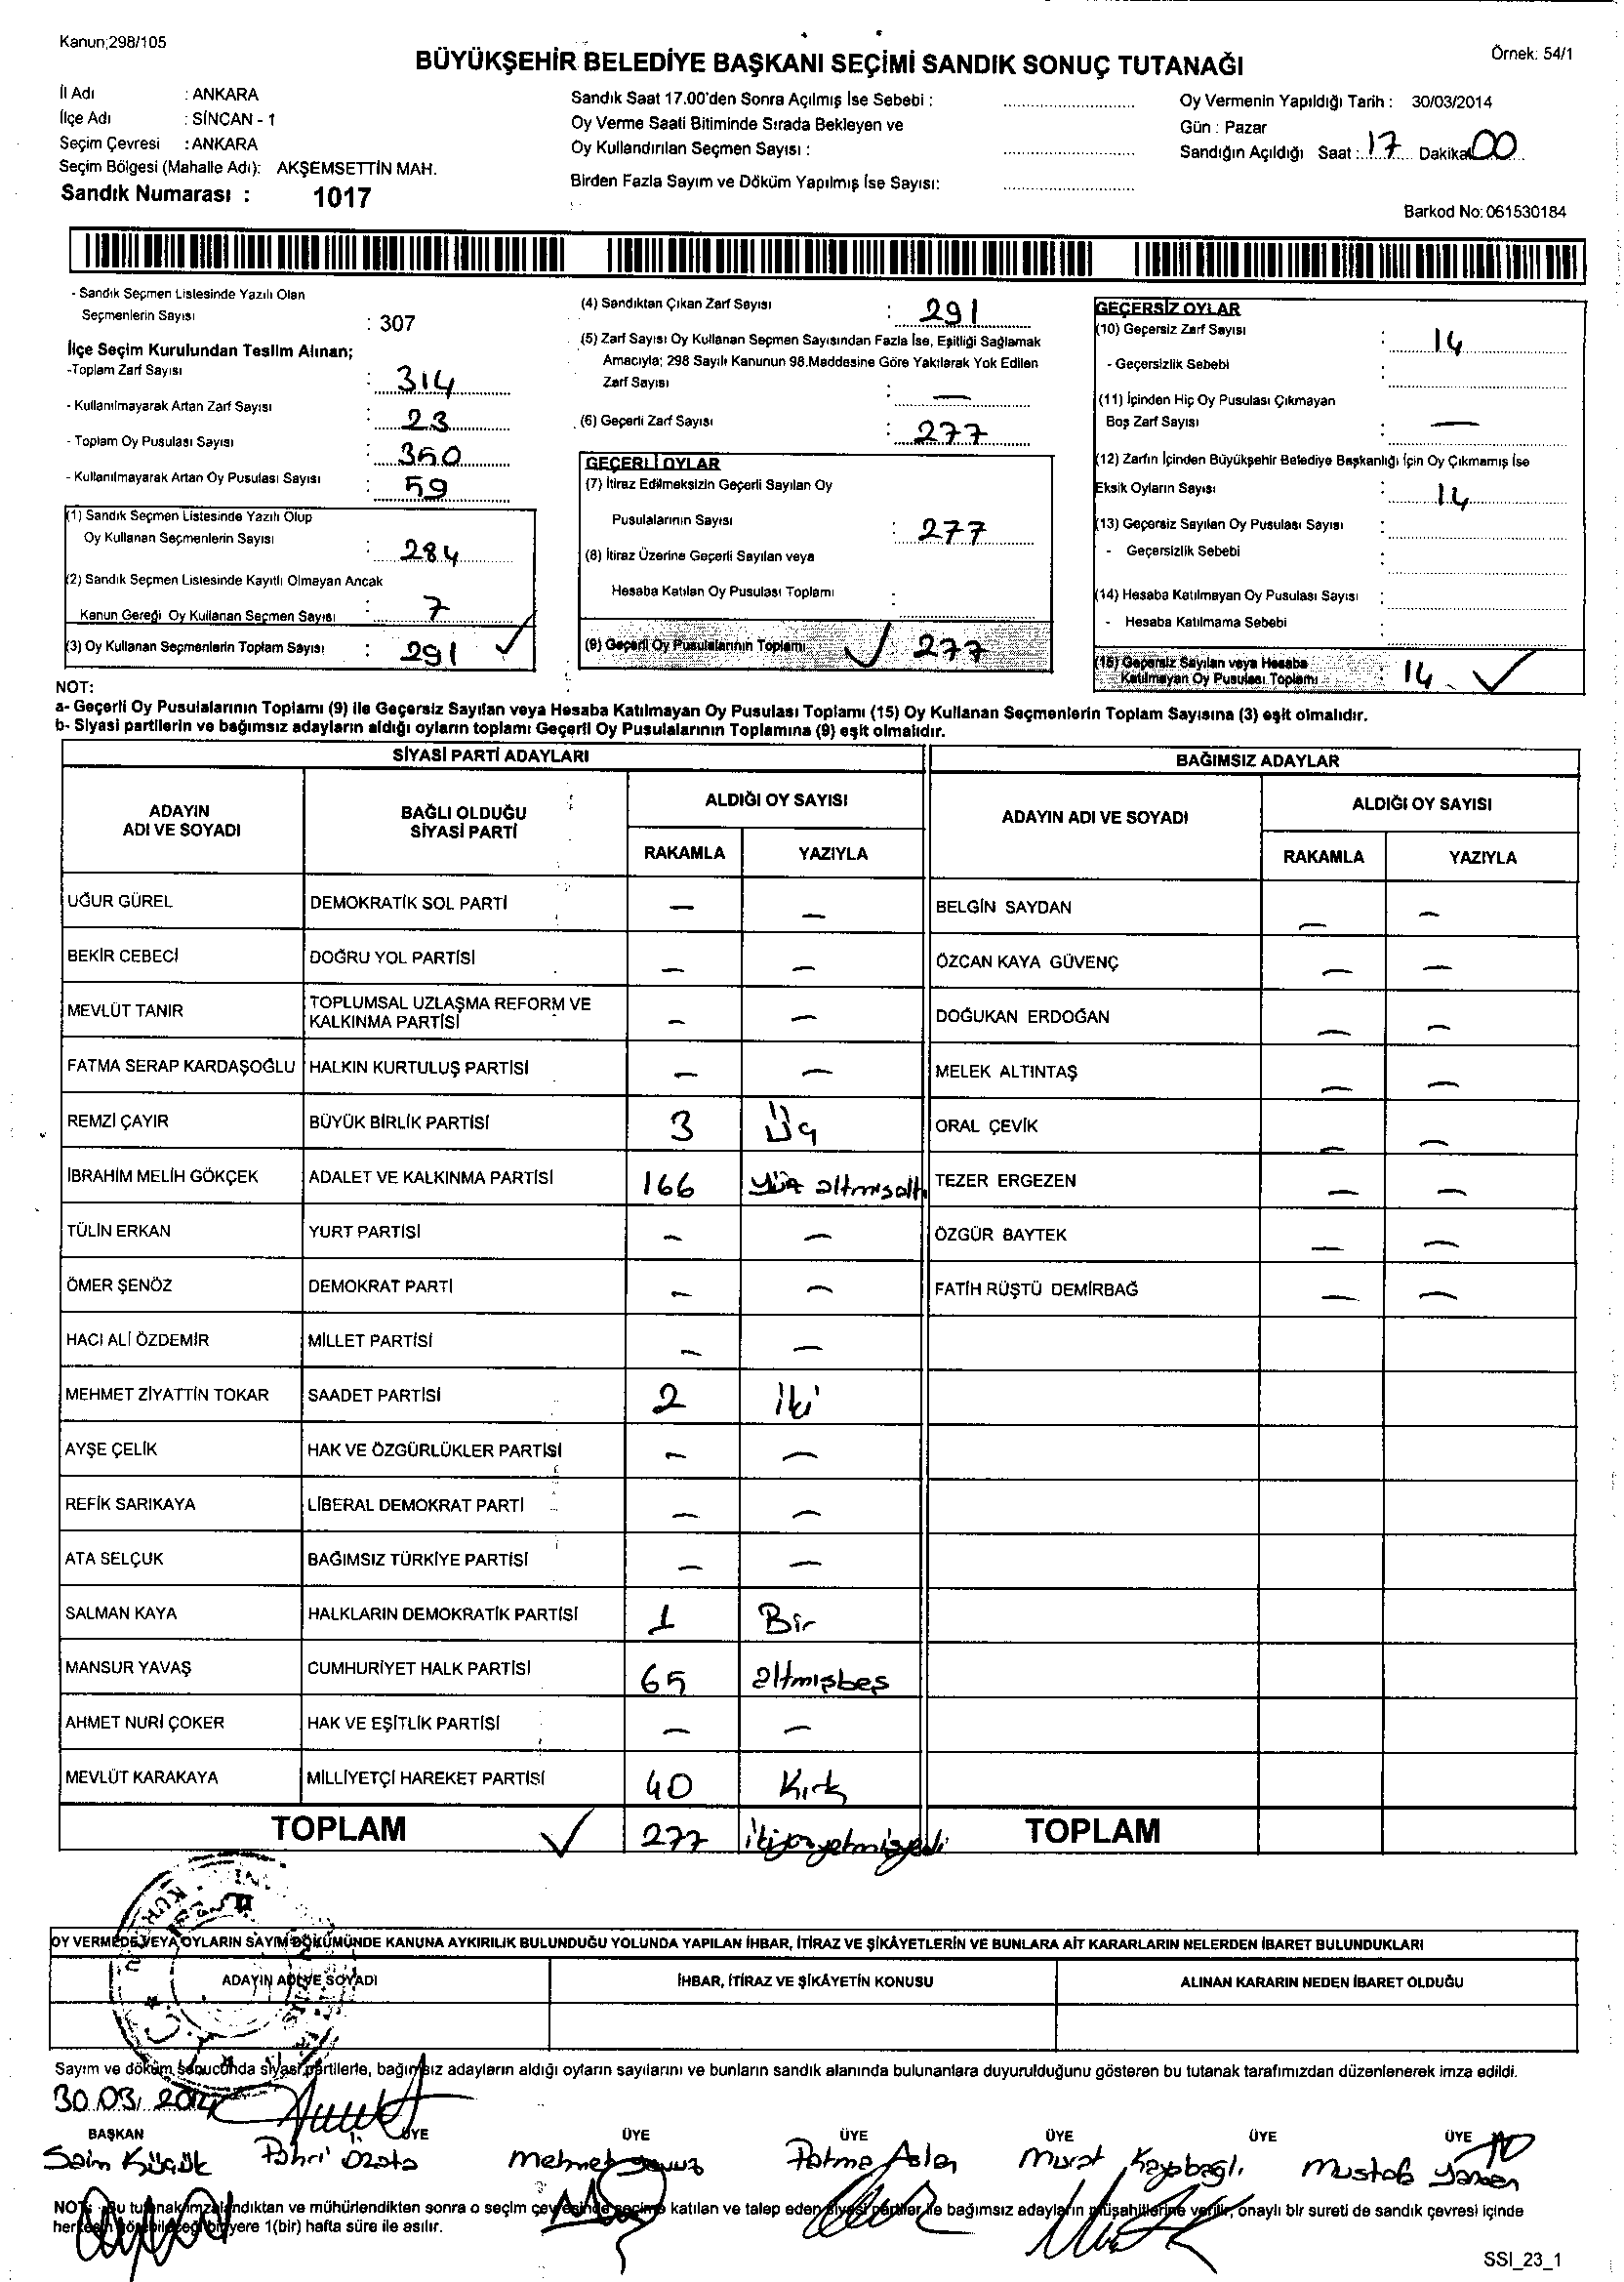 Kanun;298/105
BÜYÜKŞEHİR BELEDİYE BAŞKANI SEÇİMİ SANDIK SONUÇ TUTANAĞI
Örnek: 54/1
İl Adı : ANKARA
İlçe Adı : SİNCAN - 1
Seçim Çevresi : ANKARA
Seçim Bölgesi (Mahalle Adı): AKŞEMSETTİN MAH.
Sandık Numarası : 1017
Sandık Saat 17.00'den Sonra Açılmış İse Sebebi :
Oy Verme Saati Bitiminde Sırada Bekleyen ve
Oy Kullandırılan Seçmen Sayısı :
Birden Fazla Sayım ve Döküm Yapılmış İse Sayısı:
Oy Vermenin Yapıldığı Tarih : 30/03/2014
Gün : Pazar
Sandığın Açıldığı Saat : 17 Dakika 00
Barkod No: 061530184
- Sandık Seçmen Listesinde Yazılı Olan
Seçmenlerin Sayısı : 307
İlçe Seçim Kurulundan Teslim Alınan;
-Toplam Zarf Sayısı : 314
- Kullanılmayarak Artan Zarf Sayısı : 23
- Toplam Oy Pusulası Sayısı : 350
- Kullanılmayarak Artan Oy Pusulası Sayısı : 59
(1) Sandık Seçmen Listesinde Yazılı Olup
Oy Kullanan Seçmenlerin Sayısı : 284
(2) Sandık Seçmen Listesinde Kayıtlı Olmayan Ancak
Kanun Gereği Oy Kullanan Seçmen Sayısı : 7
(3) Oy Kullanan Seçmenlerin Toplam Sayısı : 291 ✓
(4) Sandıktan Çıkan Zarf Sayısı : 291
(5) Zarf Sayısı Oy Kullanan Seçmen Sayısından Fazla İse, Eşitliği Sağlamak
Amacıyla; 298 Sayılı Kanunun 98.Maddesine Göre Yakılarak Yok Edilen
Zarf Sayısı : —
(6) Geçerli Zarf Sayısı : 277
GEÇERLİ OYLAR
(7) İtiraz Edilmeksizin Geçerli Sayılan Oy
Pusulalarının Sayısı : 277
(8) İtiraz Üzerine Geçerli Sayılan veya
Hesaba Katılan Oy Pusulası Toplamı :
(9) Geçerli Oy Pusulalarının Toplamı ✓ 277
GEÇERSİZ OYLAR
(10) Geçersiz Zarf Sayısı : 14
- Geçersizlik Sebebi :
(11) İçinden Hiç Oy Pusulası Çıkmayan
Boş Zarf Sayısı : —
(12) Zarfın İçinden Büyükşehir Belediye Başkanlığı İçin Oy Çıkmamış İse
Eksik Oyların Sayısı : 14
(13) Geçersiz Sayılan Oy Pusulası Sayısı :
- Geçersizlik Sebebi :
(14) Hesaba Katılmayan Oy Pusulası Sayısı :
- Hesaba Katılmama Sebebi :
(15) Geçersiz Sayılan veya Hesaba
Katılmayan Oy Pusulası Toplamı : 14 ✓
NOT:
a- Geçerli Oy Pusulalarının Toplamı (9) ile Geçersiz Sayılan veya Hesaba Katılmayan Oy Pusulası Toplamı (15) Oy Kullanan Seçmenlerin Toplam Sayısına (3) eşit olmalıdır.
b- Siyasi partilerin ve bağımsız adayların aldığı oyların toplamı Geçerli Oy Pusulalarının Toplamına (9) eşit olmalıdır.
SİYASİ PARTİ ADAYLARI
ADAYIN
ADI VE SOYADI
BAĞLI OLDUĞU
SİYASİ PARTİ
ALDIĞI OY SAYISI
RAKAMLA YAZIYLA
UĞUR GÜREL DEMOKRATİK SOL PARTİ — —
BEKİR CEBECİ DOĞRU YOL PARTİSİ — —
MEVLÜT TANIR TOPLUMSAL UZLAŞMA REFORM VE
KALKINMA PARTİSİ — —
FATMA SERAP KARDAŞOĞLU HALKIN KURTULUŞ PARTİSİ — —
REMZİ ÇAYIR BÜYÜK BİRLİK PARTİSİ 3 Üç
İBRAHİM MELİH GÖKÇEK ADALET VE KALKINMA PARTİSİ 166 yüz altmışaltı
TÜLİN ERKAN YURT PARTİSİ — —
ÖMER ŞENÖZ DEMOKRAT PARTİ — —
HACI ALİ ÖZDEMİR MİLLET PARTİSİ — —
MEHMET ZİYATTİN TOKAR SAADET PARTİSİ 2 İki
AYŞE ÇELİK HAK VE ÖZGÜRLÜKLER PARTİSİ — —
REFİK SARIKAYA LİBERAL DEMOKRAT PARTİ — —
ATA SELÇUK BAĞIMSIZ TÜRKİYE PARTİSİ — —
SALMAN KAYA HALKLARIN DEMOKRATİK PARTİSİ 1 Bir
MANSUR YAVAŞ CUMHURİYET HALK PARTİSİ 65 altmışbeş
AHMET NURİ ÇOKER HAK VE EŞİTLİK PARTİSİ — —
MEVLÜT KARAKAYA MİLLİYETÇİ HAREKET PARTİSİ 40 Kırk
TOPLAM ✓ 277 ikiyüzyetmişyedi
BAĞIMSIZ ADAYLAR
ADAYIN ADI VE SOYADI
ALDIĞI OY SAYISI
RAKAMLA YAZIYLA
BELGİN SAYDAN — —
ÖZCAN KAYA GÜVENÇ — —
DOĞUKAN ERDOĞAN — —
MELEK ALTINTAŞ — —
ORAL ÇEVİK — —
TEZER ERGEZEN — —
ÖZGÜR BAYTEK — —
FATİH RÜŞTÜ DEMİRBAĞ — —
TOPLAM
OY VERMEDE VEYA OYLARIN SAYIM DÖKÜMÜNDE KANUNA AYKIRILIK BULUNDUĞU YOLUNDA YAPILAN İHBAR, İTİRAZ VE ŞİKÂYETLERİN VE BUNLARA AİT KARARLARIN NELERDEN İBARET BULUNDUKLARI
ADAYIN ADI VE SOYADI
İHBAR, İTİRAZ VE ŞİKÂYETİN KONUSU
ALINAN KARARIN NEDEN İBARET OLDUĞU
Sayım ve döküm sonucunda siyasi partilerle, bağımsız adayların aldığı oyların sayılarını ve bunların sandık alanında bulunanlara duyurulduğunu gösteren bu tutanak tarafımızdan düzenlenerek imza edildi.
30.03.2014
BAŞKAN ÜYE ÜYE ÜYE ÜYE ÜYE ÜYE
Saim Küçük Fahri Özata Mehmet Yavuz Fatma Aslan Murat Kayabaglı Mustafa
NOT: Bu tutanak imzalandıktan ve mühürlendikten sonra o seçim çevresinde seçime katılan ve talep eden siyasi partiler ile bağımsız adayların müşahitlerine verilir, onaylı bir sureti de sandık çevresi içinde
herkesin görebileceği bir yere 1(bir) hafta süre ile asılır.
SSI_23_1